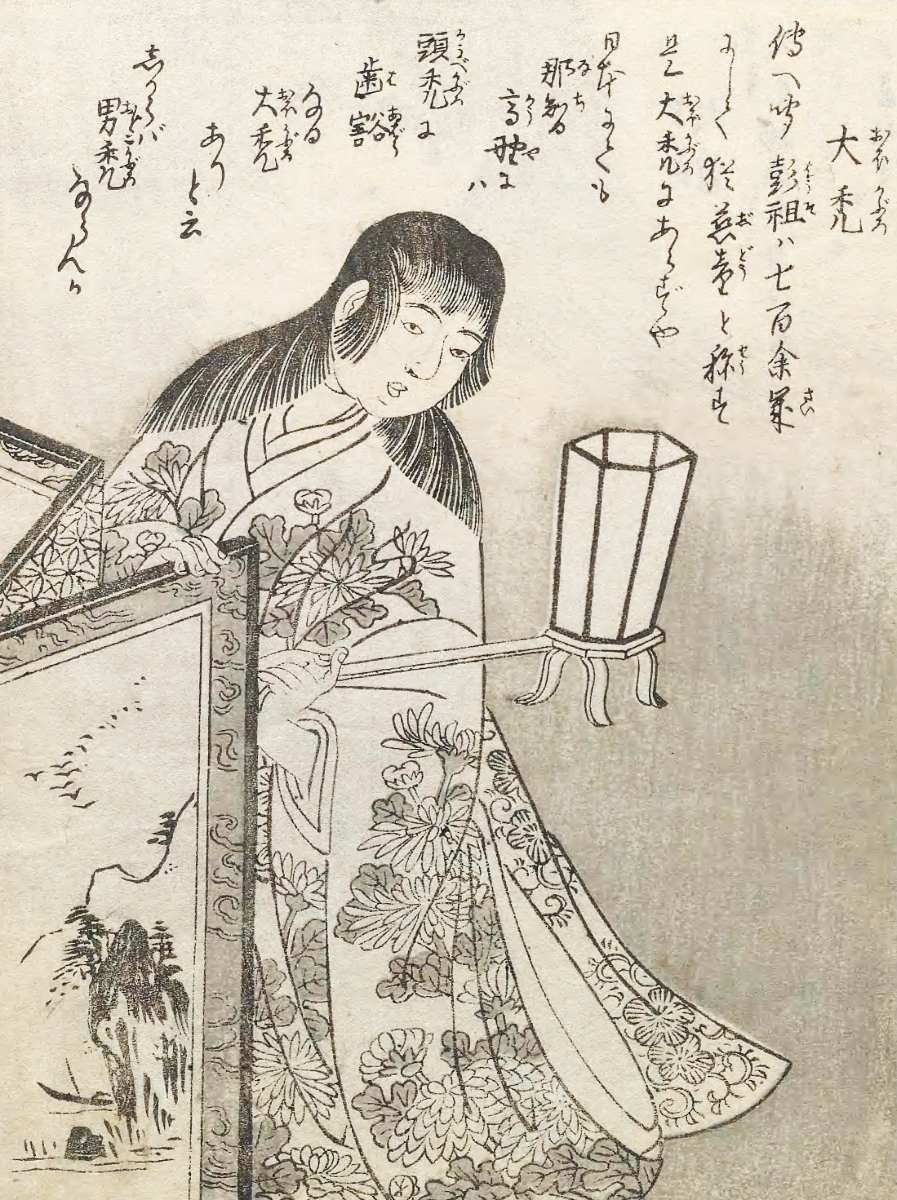 大禿
傳へ聞彭祖ハ七百余歳
にして猶慈童と称す
是大禿にあらずや
日本にても
那智
高野にハ
頭禿に
歯豁
なる
大禿
ありと云
しからバ
男禿
ならんか